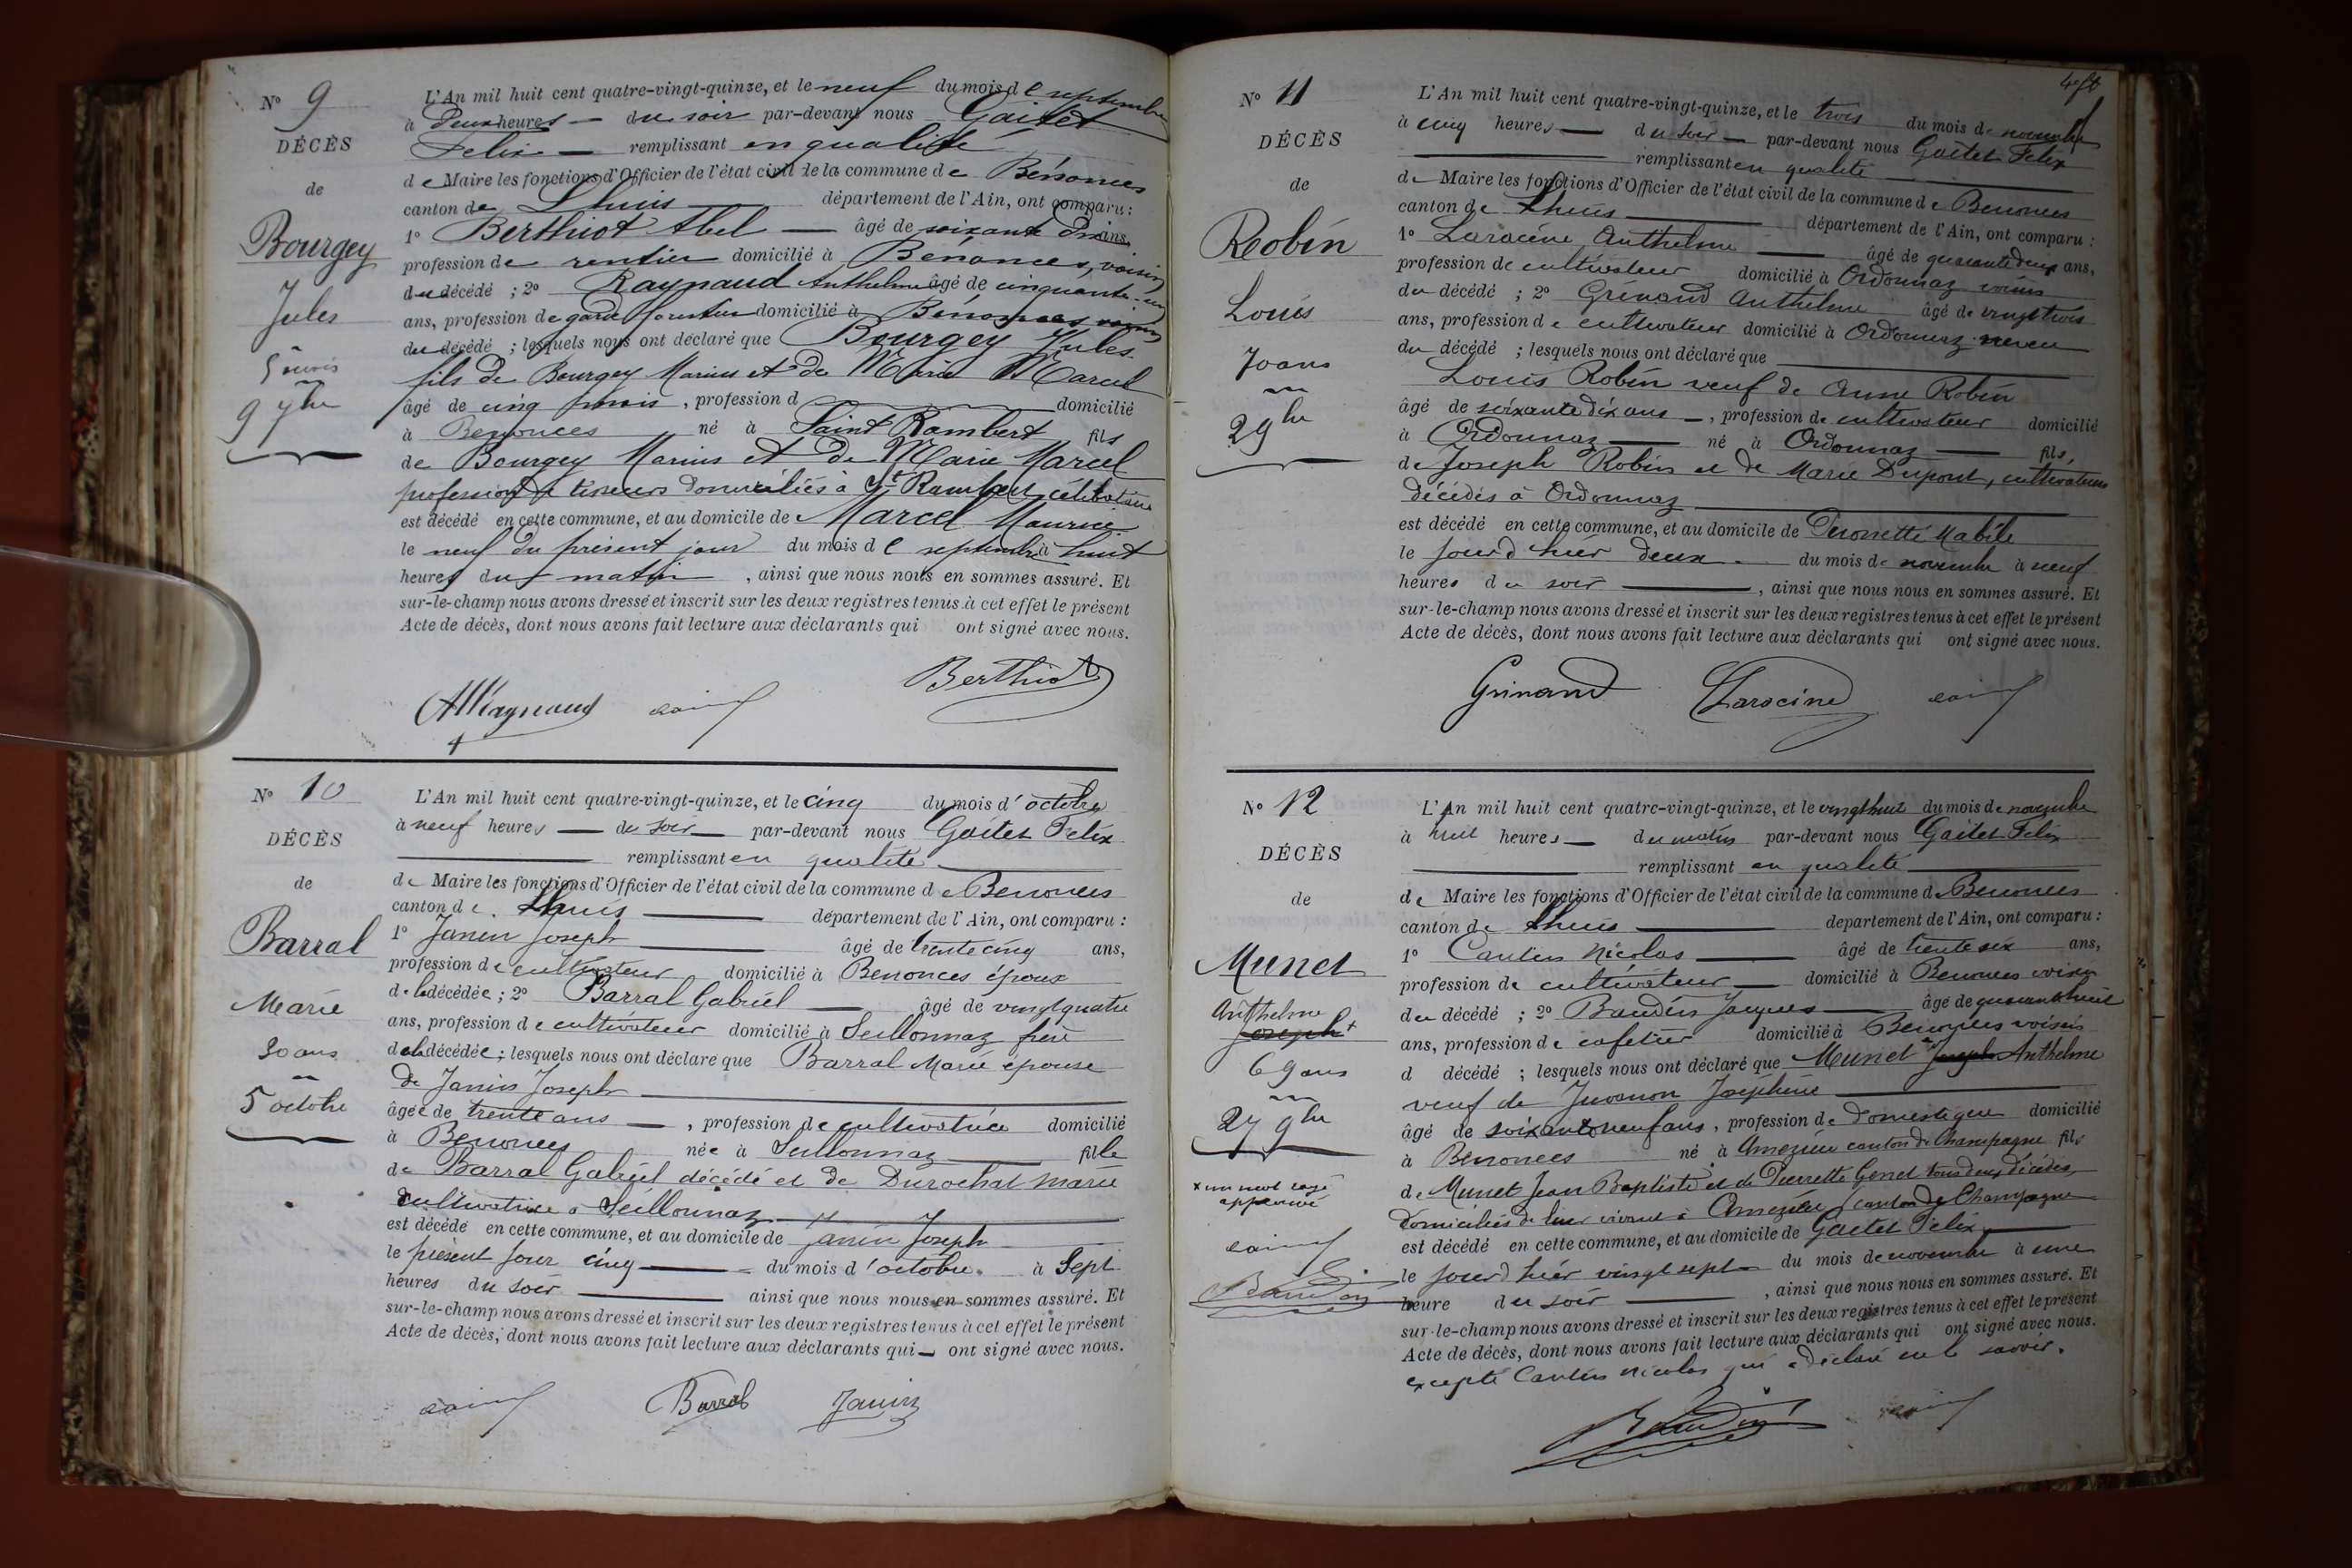 N° 9
DÉCÈS
de
Bourgey
Jules
5 mois
9 7bre
L'An mil huit cent quatre-vingt-quinze, et le neuf du mois de septembre
à Deux heures — du soir par-devant nous Gaitet
Felix — remplissant en qualité
de Maire les fonctions d'Officier de l'état civil de la commune de Bénonces
canton de Lhuis département de l'Ain, ont comparu :
1° Berthiot Abel — âgé de soixante Dix ans,
profession de rentier domicilié à Bénonces, voisin
du décédé ; 2° Raynaud Anthelme âgé de cinquante-un
ans, profession de garde forestier domicilié à Bénonces voisin
du décédé ; lesquels nous ont déclaré que Bourgey Jules
fils de Bourgey Marius et de Marie Marcel
âgé de cinq mois, profession d domicilié
à Benonces né à Saint Rambert fils
de Bourgey Marius et de Marie Marcel
profession de tisseurs domiciliés à St Rambert, célibataire
est décédé en cette commune, et au domicile de Marcel Maurice
le neuf du présent jour du mois de septembre à huit
heures du matin, ainsi que nous nous en sommes assuré. Et
sur-le-champ nous avons dressé et inscrit sur les deux registres tenus à cet effet le présent
Acte de décès, dont nous avons fait lecture aux déclarants qui ont signé avec nous.
Berthiot
ARaynaud
N° 10
DÉCÈS
de
Barral
Marie
30 ans
5 octobre
L'An mil huit cent quatre-vingt-quinze, et le cinq du mois d'octobre
à neuf heures — du soir — par-devant nous Gaitet Felix
remplissant en qualité
de Maire les fonctions d'Officier de l'état civil de la commune de Benonces
canton de Lhuis département de l'Ain, ont comparu :
1° Janin Joseph âgé de trente cinq ans,
profession de cultivateur domicilié à Benonces époux
de la décédée ; 2° Barral Gabriel — âgé de vingtquatre
ans, profession de cultivateur domicilié à Seillonnaz frère
de la décédée ; lesquels nous ont déclaré que Barral Marie épouse
de Janin Joseph
âgée de trente ans —, profession de cultivatrice domicilié
à Benonces née à Seillonnaz fille
de Barral Gabriel décédé et de Durochat Marie
cultivatrice à Seillonnaz
est décédé en cette commune, et au domicile de Janin Joseph
le présent jour cinq du mois d'octobre à Sept
heures du soir ainsi que nous nous en sommes assuré. Et
sur-le-champ nous avons dressé et inscrit sur les deux registres tenus à cet effet le présent
Acte de décès, dont nous avons fait lecture aux déclarants qui — ont signé avec nous.
Barral Janin
N° 11
DÉCÈS
de
Robin
Louis
70 ans
2 9bre
L'An mil huit cent quatre-vingt-quinze, et le trois du mois de novembre
à cinq heures — du soir — par-devant nous Gaitet Felix
remplissant en qualité
de Maire les fonctions d'Officier de l'état civil de la commune de Benonces
canton de Lhuis département de l'Ain, ont comparu :
1° Laracine Anthelme — âgé de quarante deux ans,
profession de cultivateur domicilié à Ordonnaz voisin
du décédé ; 2° Grinand Anthelme âgé de vingt trois
ans, profession de cultivateur domicilié à Ordonnaz neveu
du décédé ; lesquels nous ont déclaré que
Louis Robin veuf de Anne Robin
âgé de soixante dix ans —, profession de cultivateur domicilié
à Ordonnaz — né à Ordonnaz — fils,
de Joseph Robin et de Marie Dupont, cultivateurs
décédés à Ordonnaz
est décédé en cette commune, et au domicile de
le jourd'hier deux du mois de novembre à neuf
heures du soir, ainsi que nous nous en sommes assuré. Et
sur-le-champ nous avons dressé et inscrit sur les deux registres tenus à cet effet le présent
Acte de décès, dont nous avons fait lecture aux déclarants qui ont signé avec nous.
Grinand Laracine
N° 12
DÉCÈS
de
Munet
Anthelme
Joseph
69 ans
27 9bre
x un mot rayé
approuvé
Baudin
L'An mil huit cent quatre-vingt-quinze, et le vingthuit du mois de novembre
à huit heures — du matin par-devant nous Gaitet Felix
remplissant en qualité
de Maire les fonctions d'Officier de l'état civil de la commune de Benonces
canton de Lhuis département de l'Ain, ont comparu :
1° Cautin Nicolas — âgé de trente six ans,
profession de cultivateur — domicilié à Benonces voisin
du décédé ; 2° Baudin Jacques — âgé de quarantehuit
ans, profession de cafetier domicilié à Benonces voisin
d décédé ; lesquels nous ont déclaré que Munet Joseph Anthelme
veuf de Juomon Josephine
âgé de soixanteneuf ans, profession de domestique domicilié
à Benonces né à Amezieu canton de Champagne fils
de Munet Jean Baptiste et de Pierrette Genet tous deux décédés,
domiciliés de leur vivant à Amezieu (canton de Champagne
est décédé en cette commune, et au domicile de Gaitet Felix
le jourd'hier vingt sept du mois de novembre à une
heure du soir, ainsi que nous nous en sommes assuré. Et
sur-le-champ nous avons dressé et inscrit sur les deux registres tenus à cet effet le présent
Acte de décès, dont nous avons fait lecture aux déclarants qui ont signé avec nous.
excepté Cautin Nicolas qui a déclaré ne le savoir.
Baudin